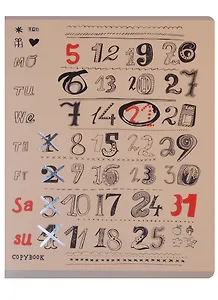 5 12 19 26
Mo 6 13 20 27
Tu 7 14 21 28
We 7 14 21 28
Th 1 8 15 22 29
Fr 2 9 16 23 30
Sa 3 10 17 24 31
Su 4 11 18 25
COPYBOOK